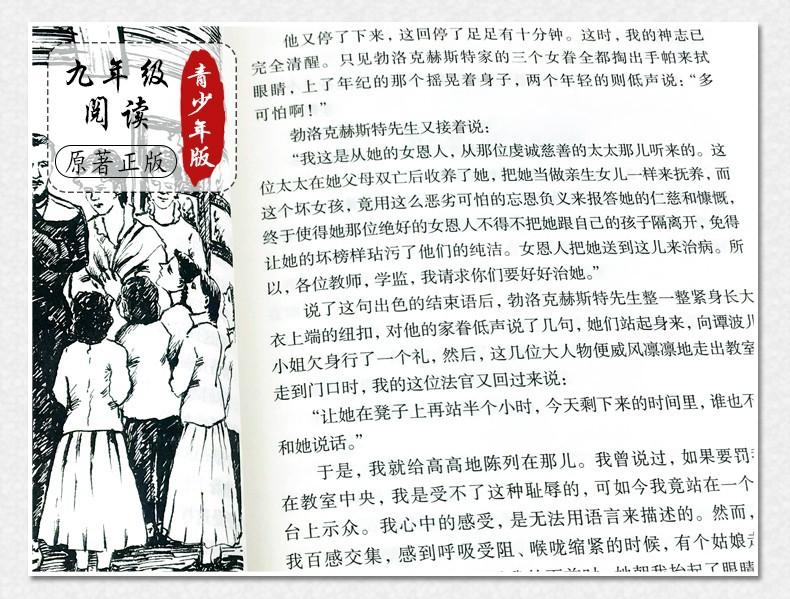 九年级
阅读
原著正版
青少年版
他又停了下来，这回停了足足有十分钟。这时，我的神志已
完全清醒。只见勃洛克赫斯特家的三个女眷全都掏出手帕来拭
眼睛，上了年纪的那个摇晃着身子，两个年轻的则低声说：“多
可怕啊！”
勃洛克赫斯特先生又接着说：
“我这是从她的女恩人，从那位虔诚慈善的太太那儿听来的。这
位太太在她父母双亡后收养了她，把她当做亲生女儿一样来抚养，而
这个坏女孩，竟用这么恶劣可怕的忘恩负义来报答她的仁慈和慷慨，
终于使得她那位绝好的女恩人不得不把她跟自己的孩子隔离开，免得
让她的坏榜样玷污了他们的纯洁。女恩人把她送到这儿来治病。所
以，各位教师，学监，我请求你们要好好治她。”
说了这句出色的结束语后，勃洛克赫斯特先生整一整紧身长大
衣上端的纽扣，对他的家眷低声说了几句，她们站起身来，向谭波儿
小姐欠身行了一个礼，然后，这几位大人物便威风凛凛地走出教室
走到门口时，我的这位法官又回过来说：
“让她在凳子上再站半个小时，今天剩下来的时间里，谁也不
和她说话。”
于是，我就给高高地陈列在那儿。我曾说过，如果要罚我
在教室中央，我是受不了这种耻辱的，可如今我竟站在一个
台上示众。我心中的感受，是无法用语言来描述的。然而，
我百感交集，感到呼吸受阻、喉咙缩紧的时候，有个姑娘走
她朝我抬起了眼睛